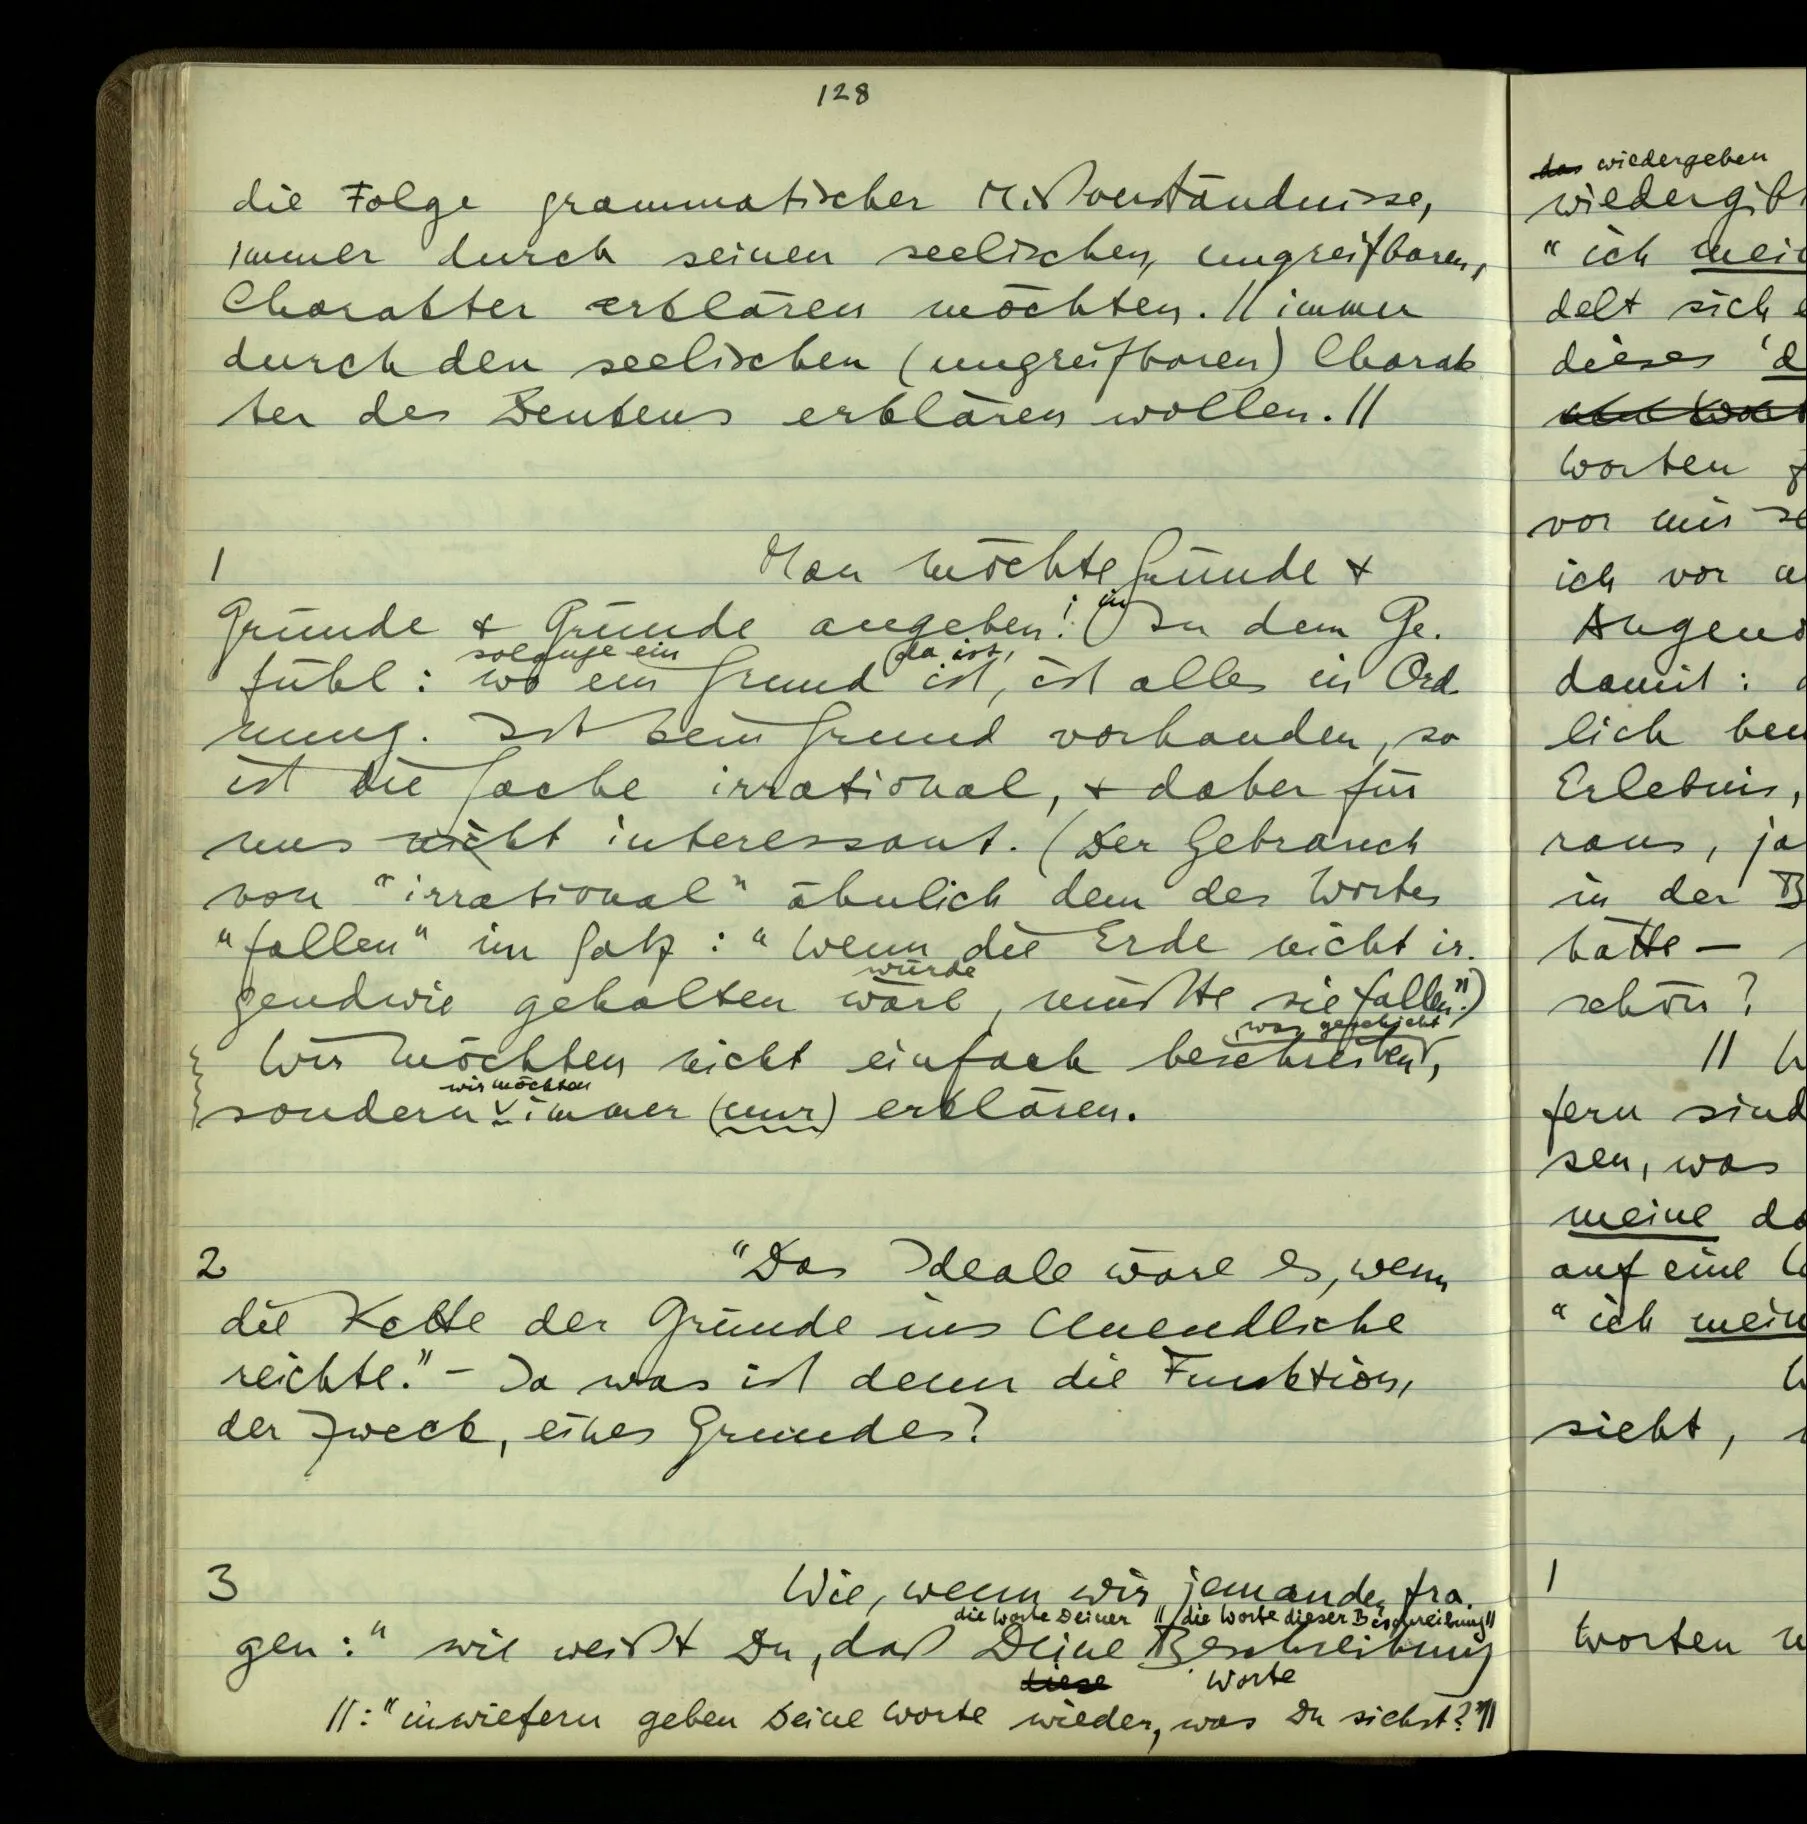 128
die Folge grammatischer Mißverständnisse,
immer durch seinen seelischen, ungreifbaren,
Charakter erklären möchten. // immer
durch den seelischen (ungreifbaren) Charak
ter des Denkens erklären wollen. //
1 Man möchte Gründe &
Gründe & Gründe angeben! ; in In dem Ge-
solange ein da ist,
fühl: wo ein Grund ist, ist alles in Ord-
nung. Ist kein Grund vorhanden, so
ist die Sache irrational, & daher für
uns nicht interessant. (Der Gebrauch
von "irrational" ähnlich dem des Wortes
"fallen" im Satz: "Wenn die Erde nicht ir-
würde
gendwie gehalten wäre, müßte sie fallen".)
was geschieht
Wir möchten nicht einfach beschreiben,
wir möchten
sondern immer (nur) erklären.
2 "Das Ideale wäre es, wenn
die Kette der Gründe ins Unendliche
reichte." – Ja was ist denn die Funktion,
der Zweck, eines Grundes?
3 Wie, wenn wir jemanden fra-
die Worte Deiner // die Worte dieser Beschreibung //
gen: "wie weißt Du, daß Deine Beschreibung
diese Worte
//: "inwiefern geben Deine Worte wieder, was Du siehst?"//
das wiedergeben
wiedergibt
"ich mein
delt sich
dieses 'd
Worten
vor mir se
ich vor
Augen
damit:
lich
Erlebnis,
raus, ja
in der B
hätte –
schön?
//
fern sind
sen, was
meine da
auf eine
"ich mein
sieht,
1
Worten